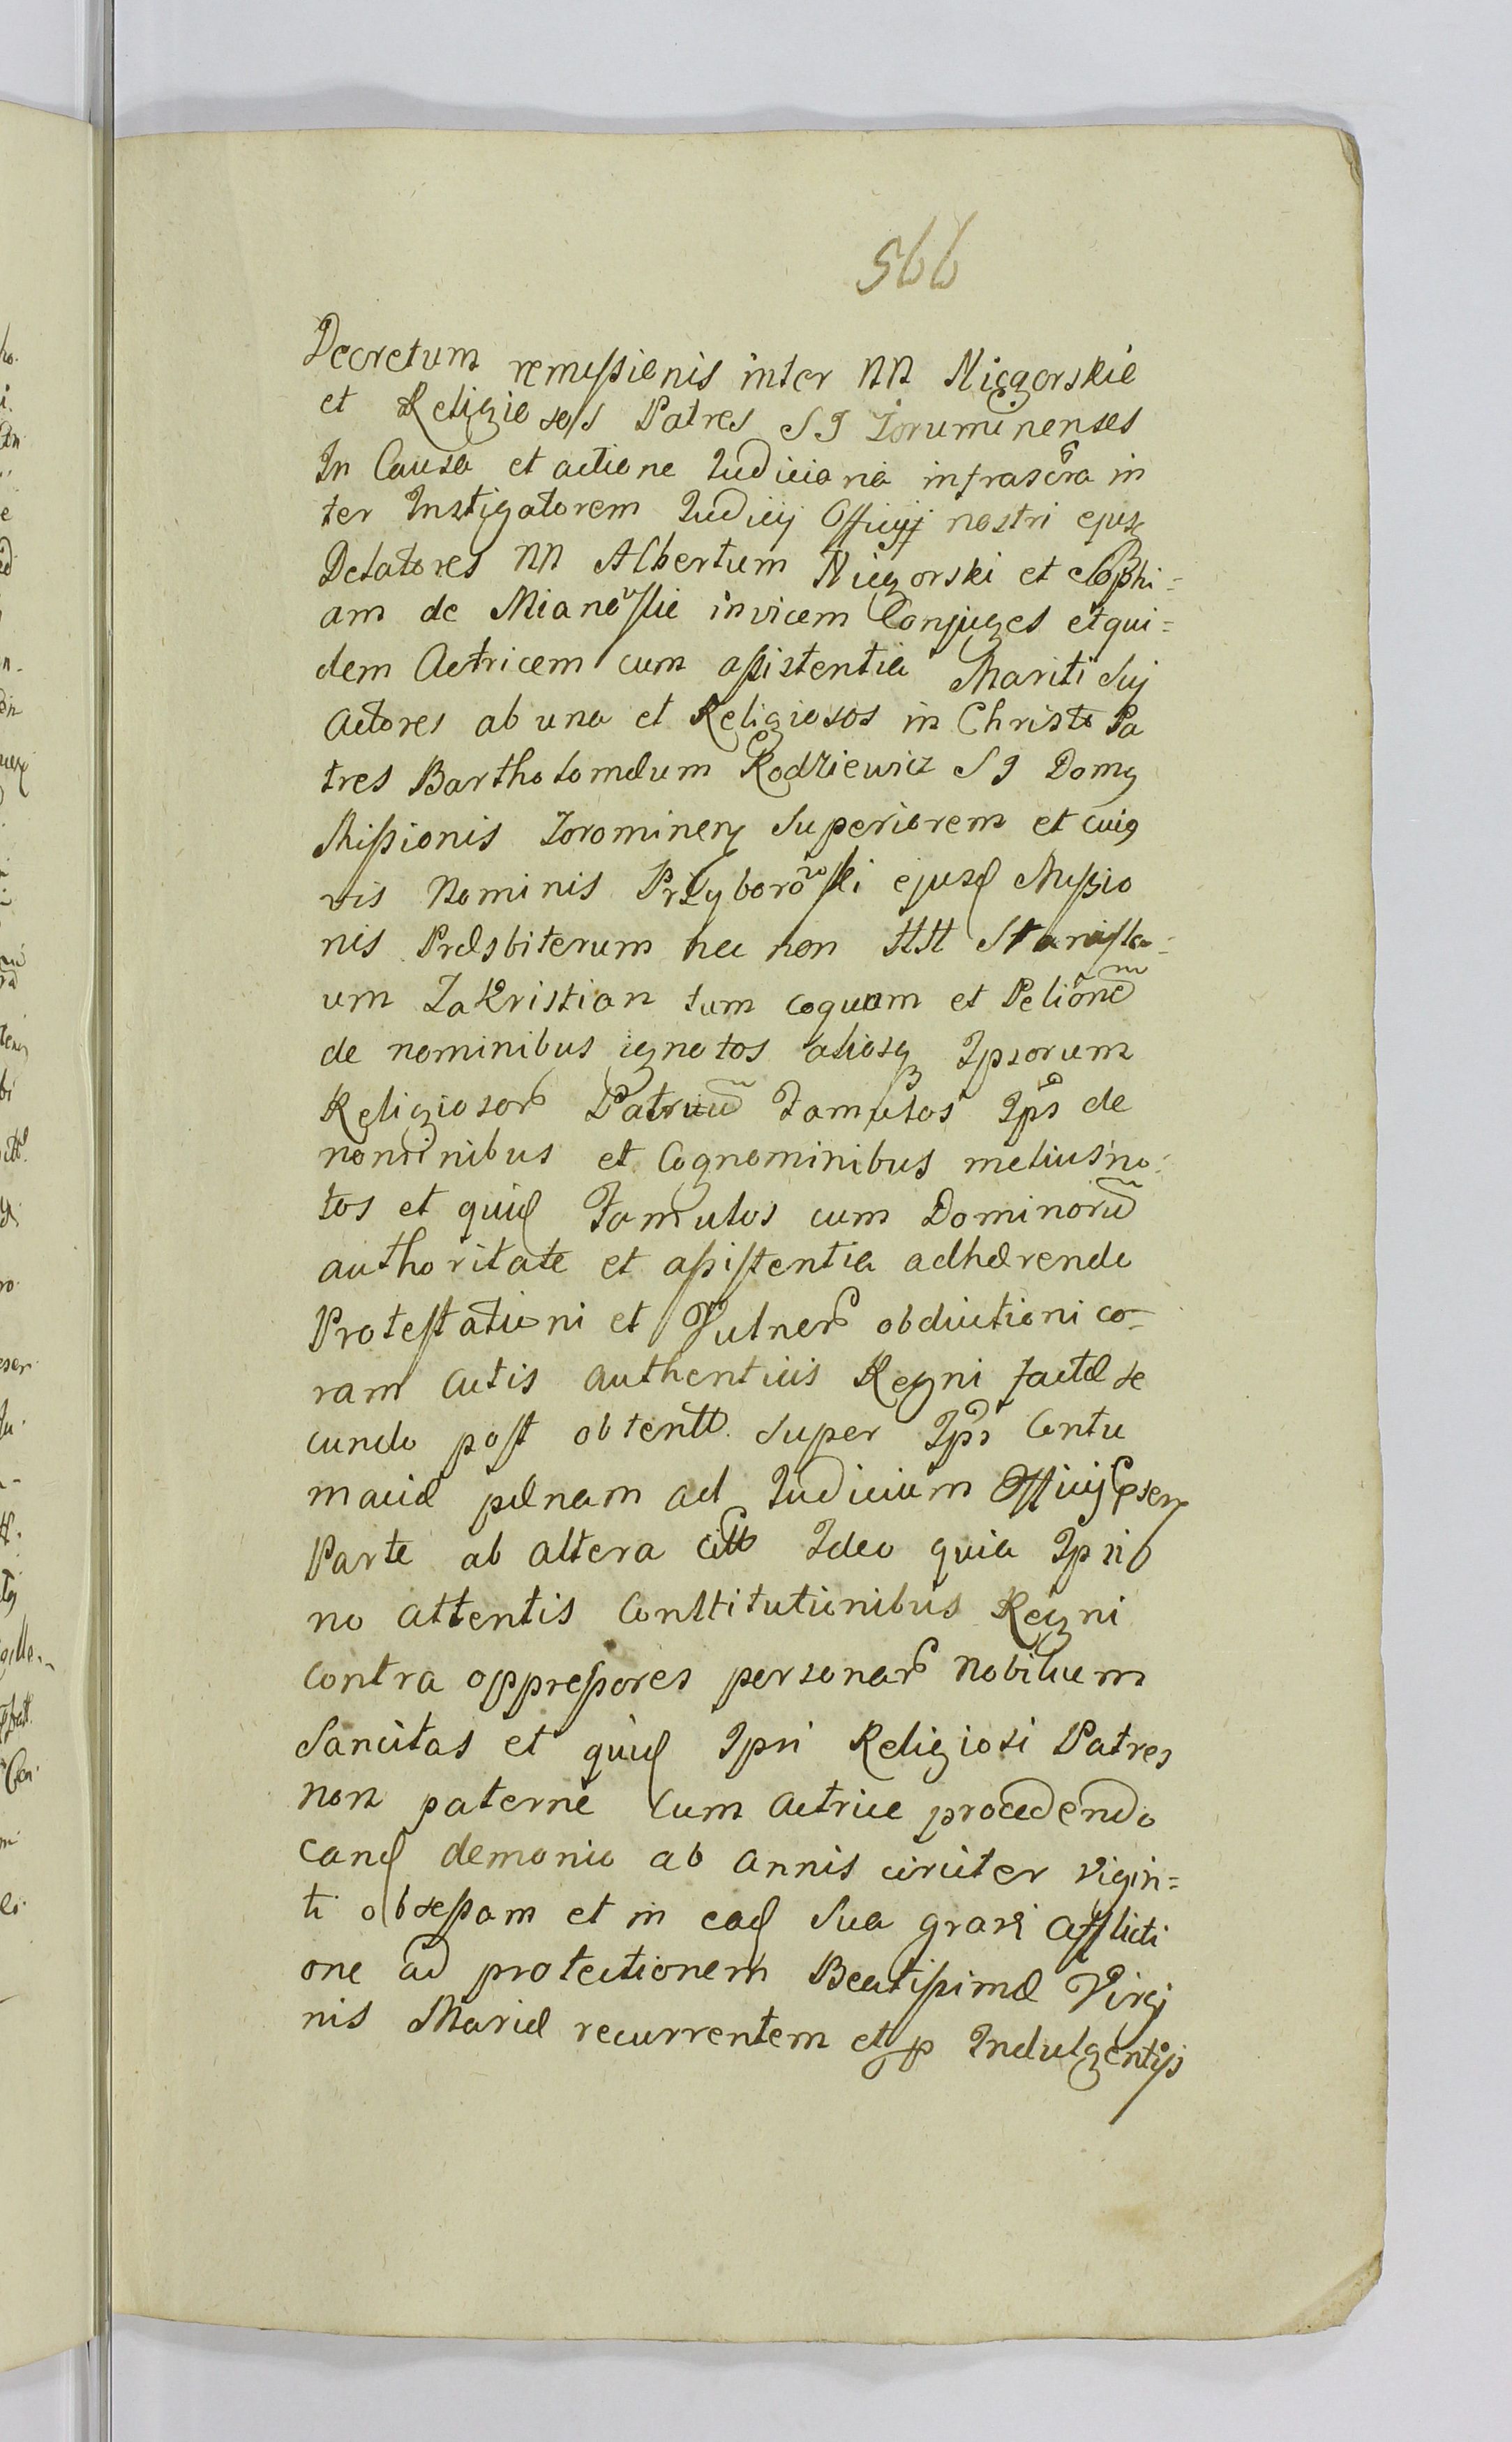 566
Decretum remissionis inter NN Niegorskie
et Religiosos Patres SJ Zoruminenses
In Causa et actione Judiciaria infrascra in
ter Instigatorem Judicij Officij nostri ejusq
Delatores NN Albertum Niegorski et Sophi=
am de Mianowskie invicem Conjuges et qui=
dem Actricem cum assistentia Mariti Suj
Actores ab una et Religiosos in Christo Pa
tres Bartholomæum Rodziewicz SJ Domq
Missionis Zorominen Superiorem et cuiq
vis Nominis Przyborowski ejusd Missio
nis Præsbiterum nec non HH Stanisla=
um Zakristian tum coquam et
de nominibus ignotos aliosq Ipsorum
Religiosor Patruum Famulos Ips de
nominibus et Cognominibus melius no=
tos et quid Famulos cum Dominorum
authoritate et assistentia adhærendo
Protestationi et Vulner obductioni co=
ram actis authenticis Regni factæ se
cundo post obtentt. Super Ips Contu
maciæ pænam ad Judicium Officij
Parte ab altera citt Ideo quia Ipsi
no attentis Constitutionibus Regni
contra oppressores personar Nobilium
Sancitas et quid Ipsi Religiosi Patres
non paterne cum Actrice procedendo
eand demonio ab annis circiter vigin=
ti obsessam et in ead Sua gravi afflicti
one ad protectionem Beatissimæ Virgi
nis Mariæ recurrentem et p Indulgentijs